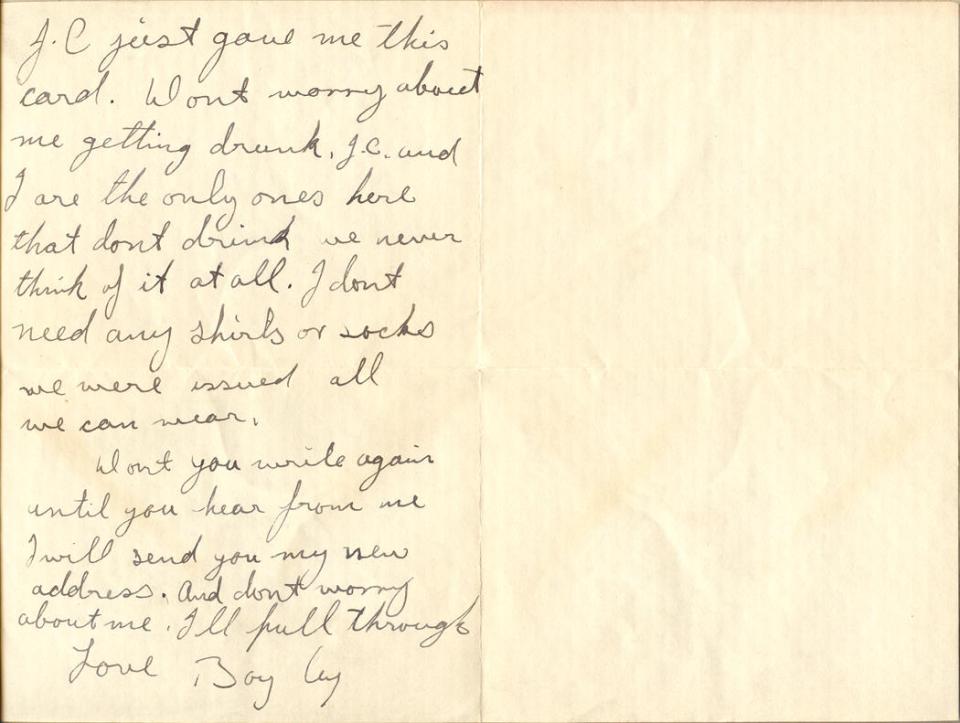 J.C just gave me this
card. Dont worry about
me getting drunk. J.C. and
I are the only ones here
that dont drink we never
think of it at all. I dont
need any shirts or socks
we were issued all
we can wear.
Dont you write again
until you hear from me
I will send you my new
address. And dont worry
about me. I'll pull through
Love Boy